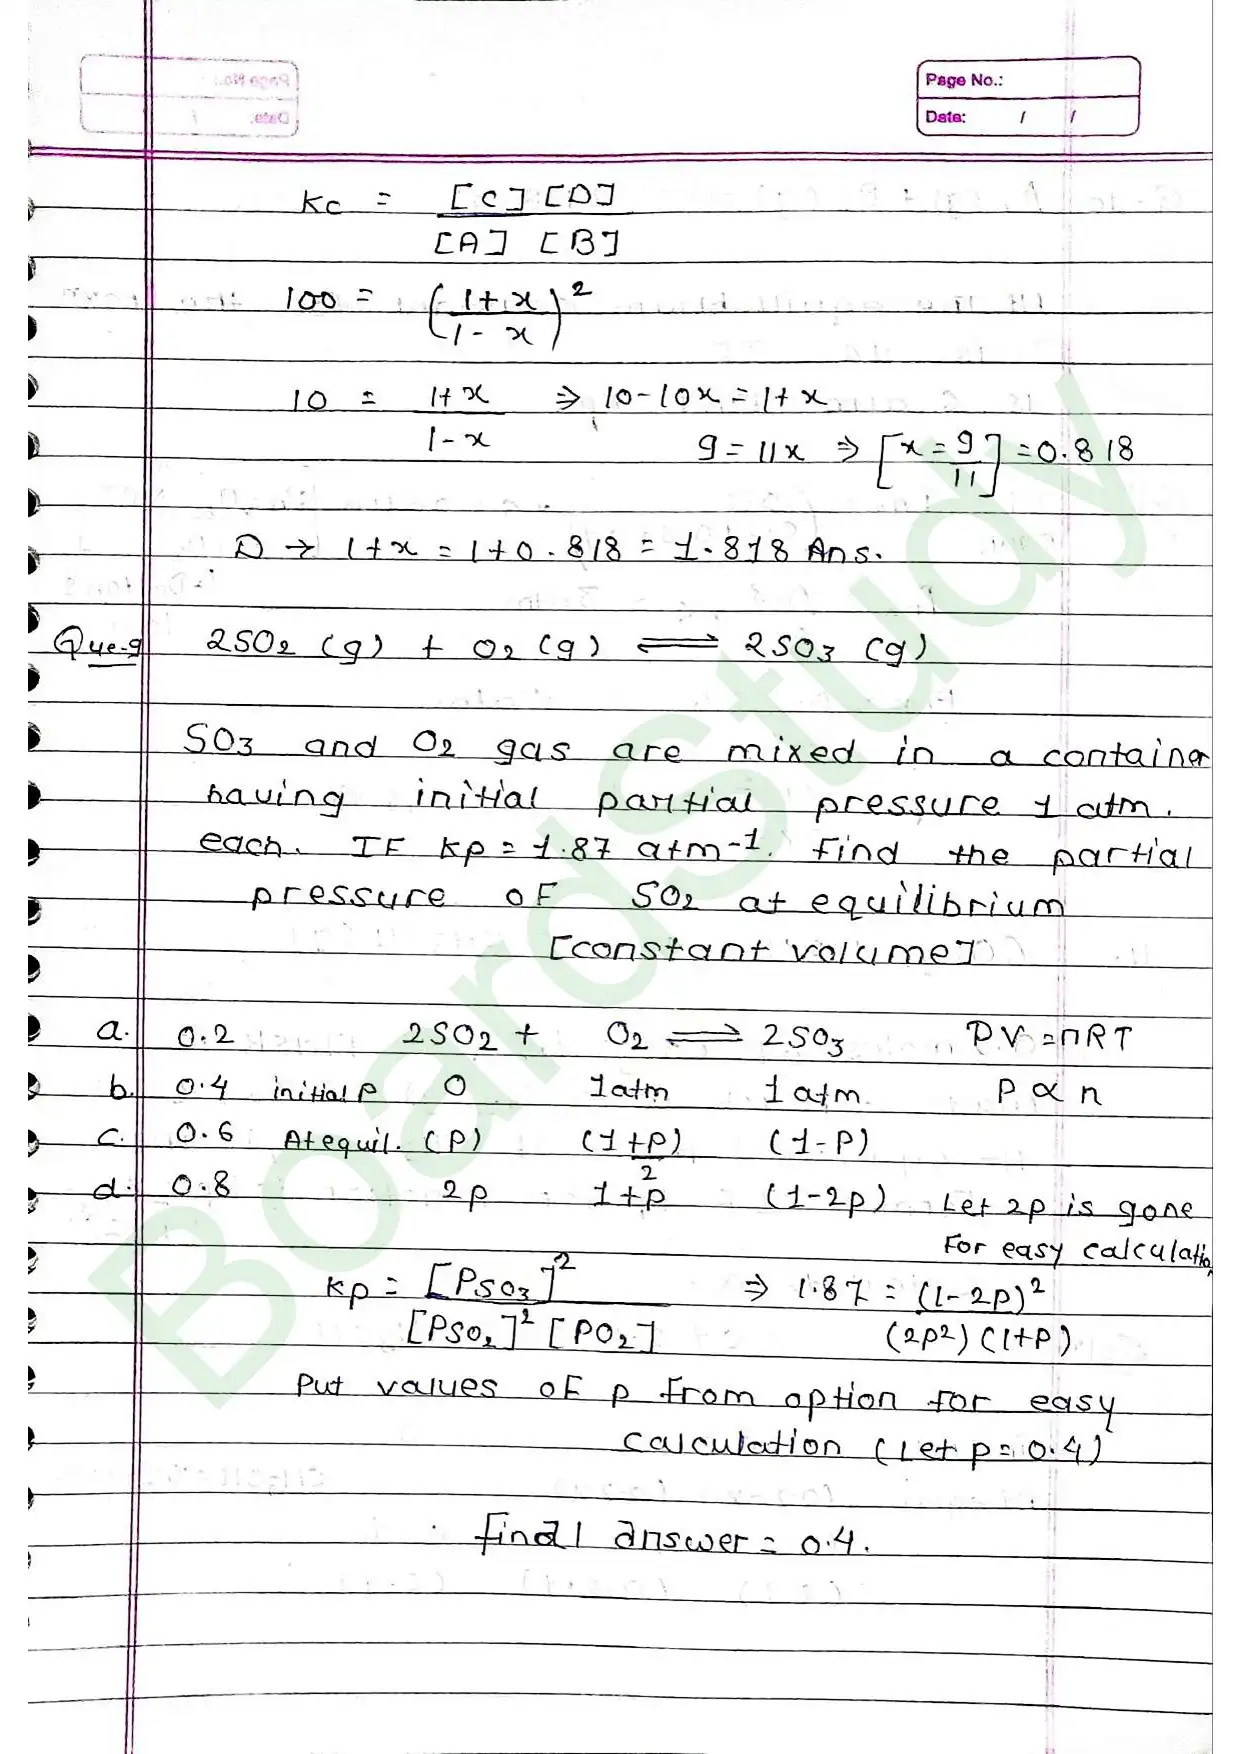 Page No.:
Date: / /
Kc = [C] [D]
[A] [B]
100 = (1+x / 1-x)²
10 = 1+x / 1-x ⇒ 10-10x = 1+x
9 = 11x ⇒ [x = 9/11] = 0.818
D → 1+x = 1+0.818 = 1.818 Ans.
Que-9 2SO₂ (g) + O₂ (g) ⇌ 2SO₃ (g)
SO₃ and O₂ gas are mixed in a container
having initial partial pressure 1 atm.
each. IF Kp = 1.87 atm⁻¹. Find the partial
pressure of SO₂ at equilibrium
[constant volume]
a. 0.2 2SO₂ + O₂ ⇌ 2SO₃ PV = nRT
b. 0.4 initial P 0 1atm 1 atm P ∝ n
c. 0.6 At equil. (P) (1+P/2) (1-P)
d. 0.8 2p 1+p (1-2p) Let 2p is gone
For easy calculatio
Kp = [PSO₃]² / [PSO₂]² [PO₂] ⇒ 1.87 = (1-2P)² / (2P²) (1+P)
Put values of p from option for easy
calculation (Let p = 0.4)
final answer = 0.4.
BoardStudy